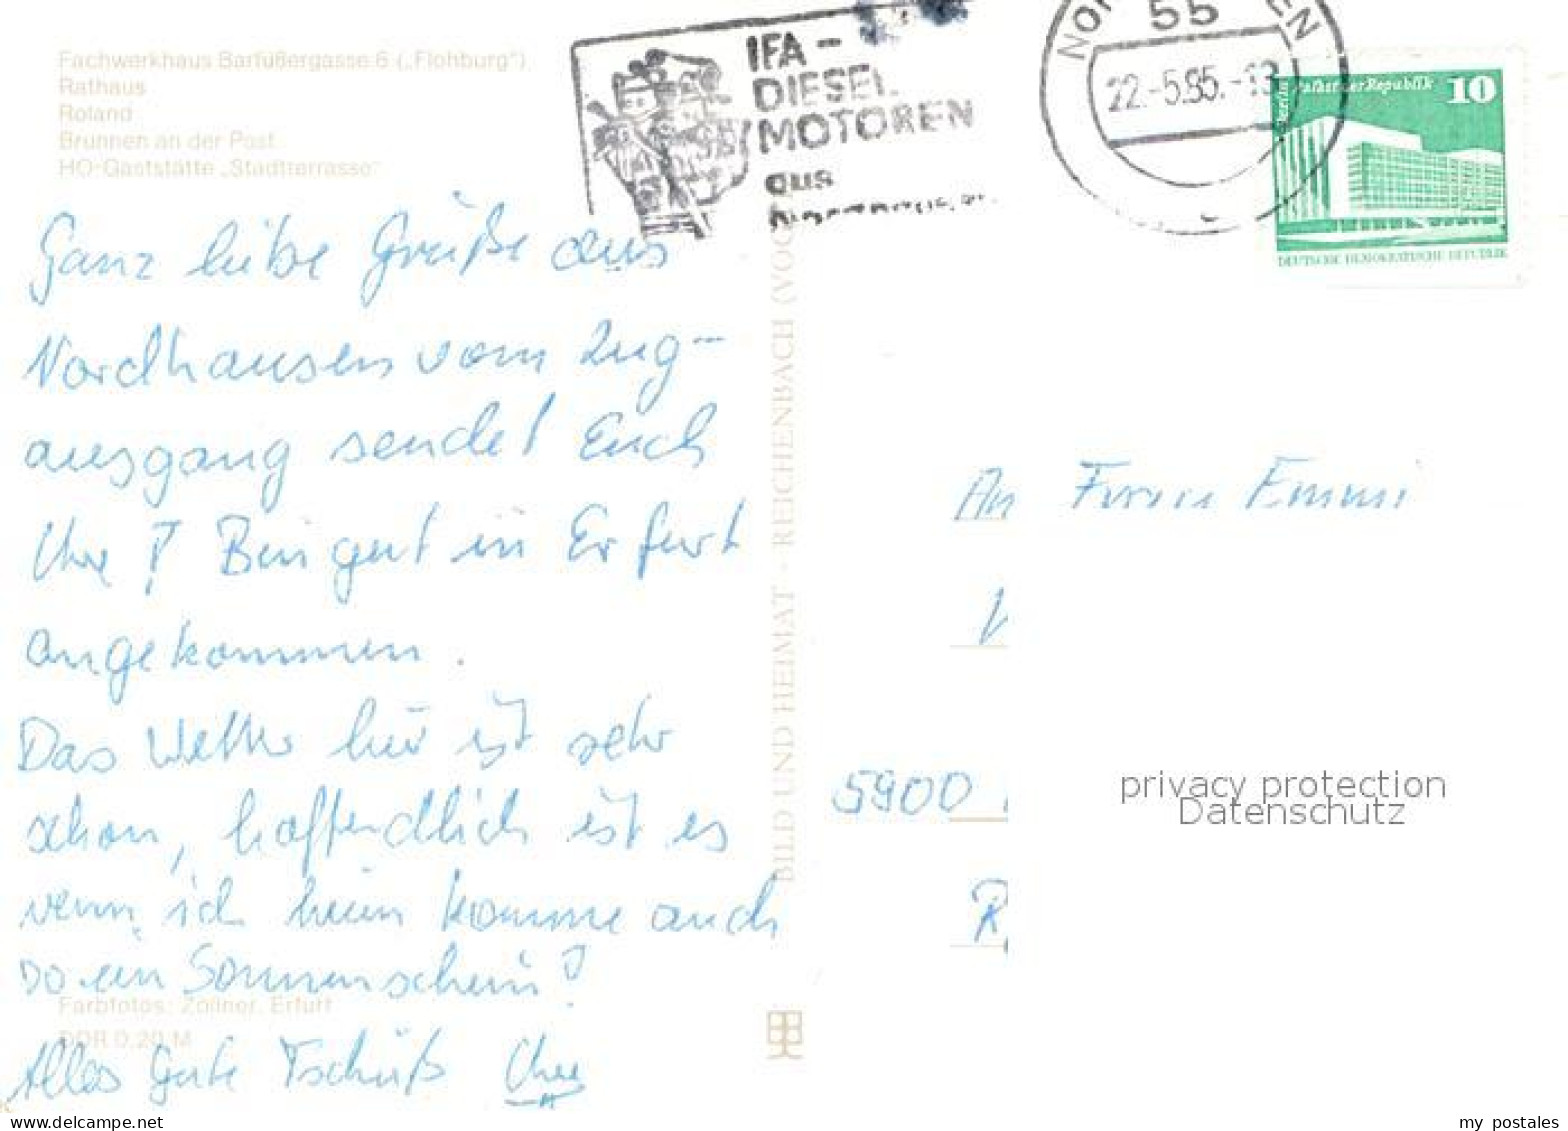 Fachwerkhaus Barfüßergasse 6 („Flohburg“)
Rathaus
Roland
Brunnen an der Post
HO-Gaststätte „Stadtterrasse“
IFA -
DIESEL
MOTOREN
aus
55
22.-5.85.-13
Berlin Palast der Republik 10
DEUTSCHE DEMOKRATISCHE REPUBLIK
Ganz liebe Grüße aus
Nordhausen vom Zug-
ausgang sendet Euch
Uwe! Bin gut in Erfurt
angekommen.
Das Wetter hier ist sehr
schön, hoffendlich ist es
wenn ich heim komme auch
so ein Sonnenschein!
Alles Gute Tschüß Uwe
Farbfotos: Zöllner, Erfurt
DDR 0,20 M
BILD UND HEIMAT · REICHENBACH (VOG
An Emmi
5900
R
privacy protection
Datenschutz
www.delcampe.net
my_postales